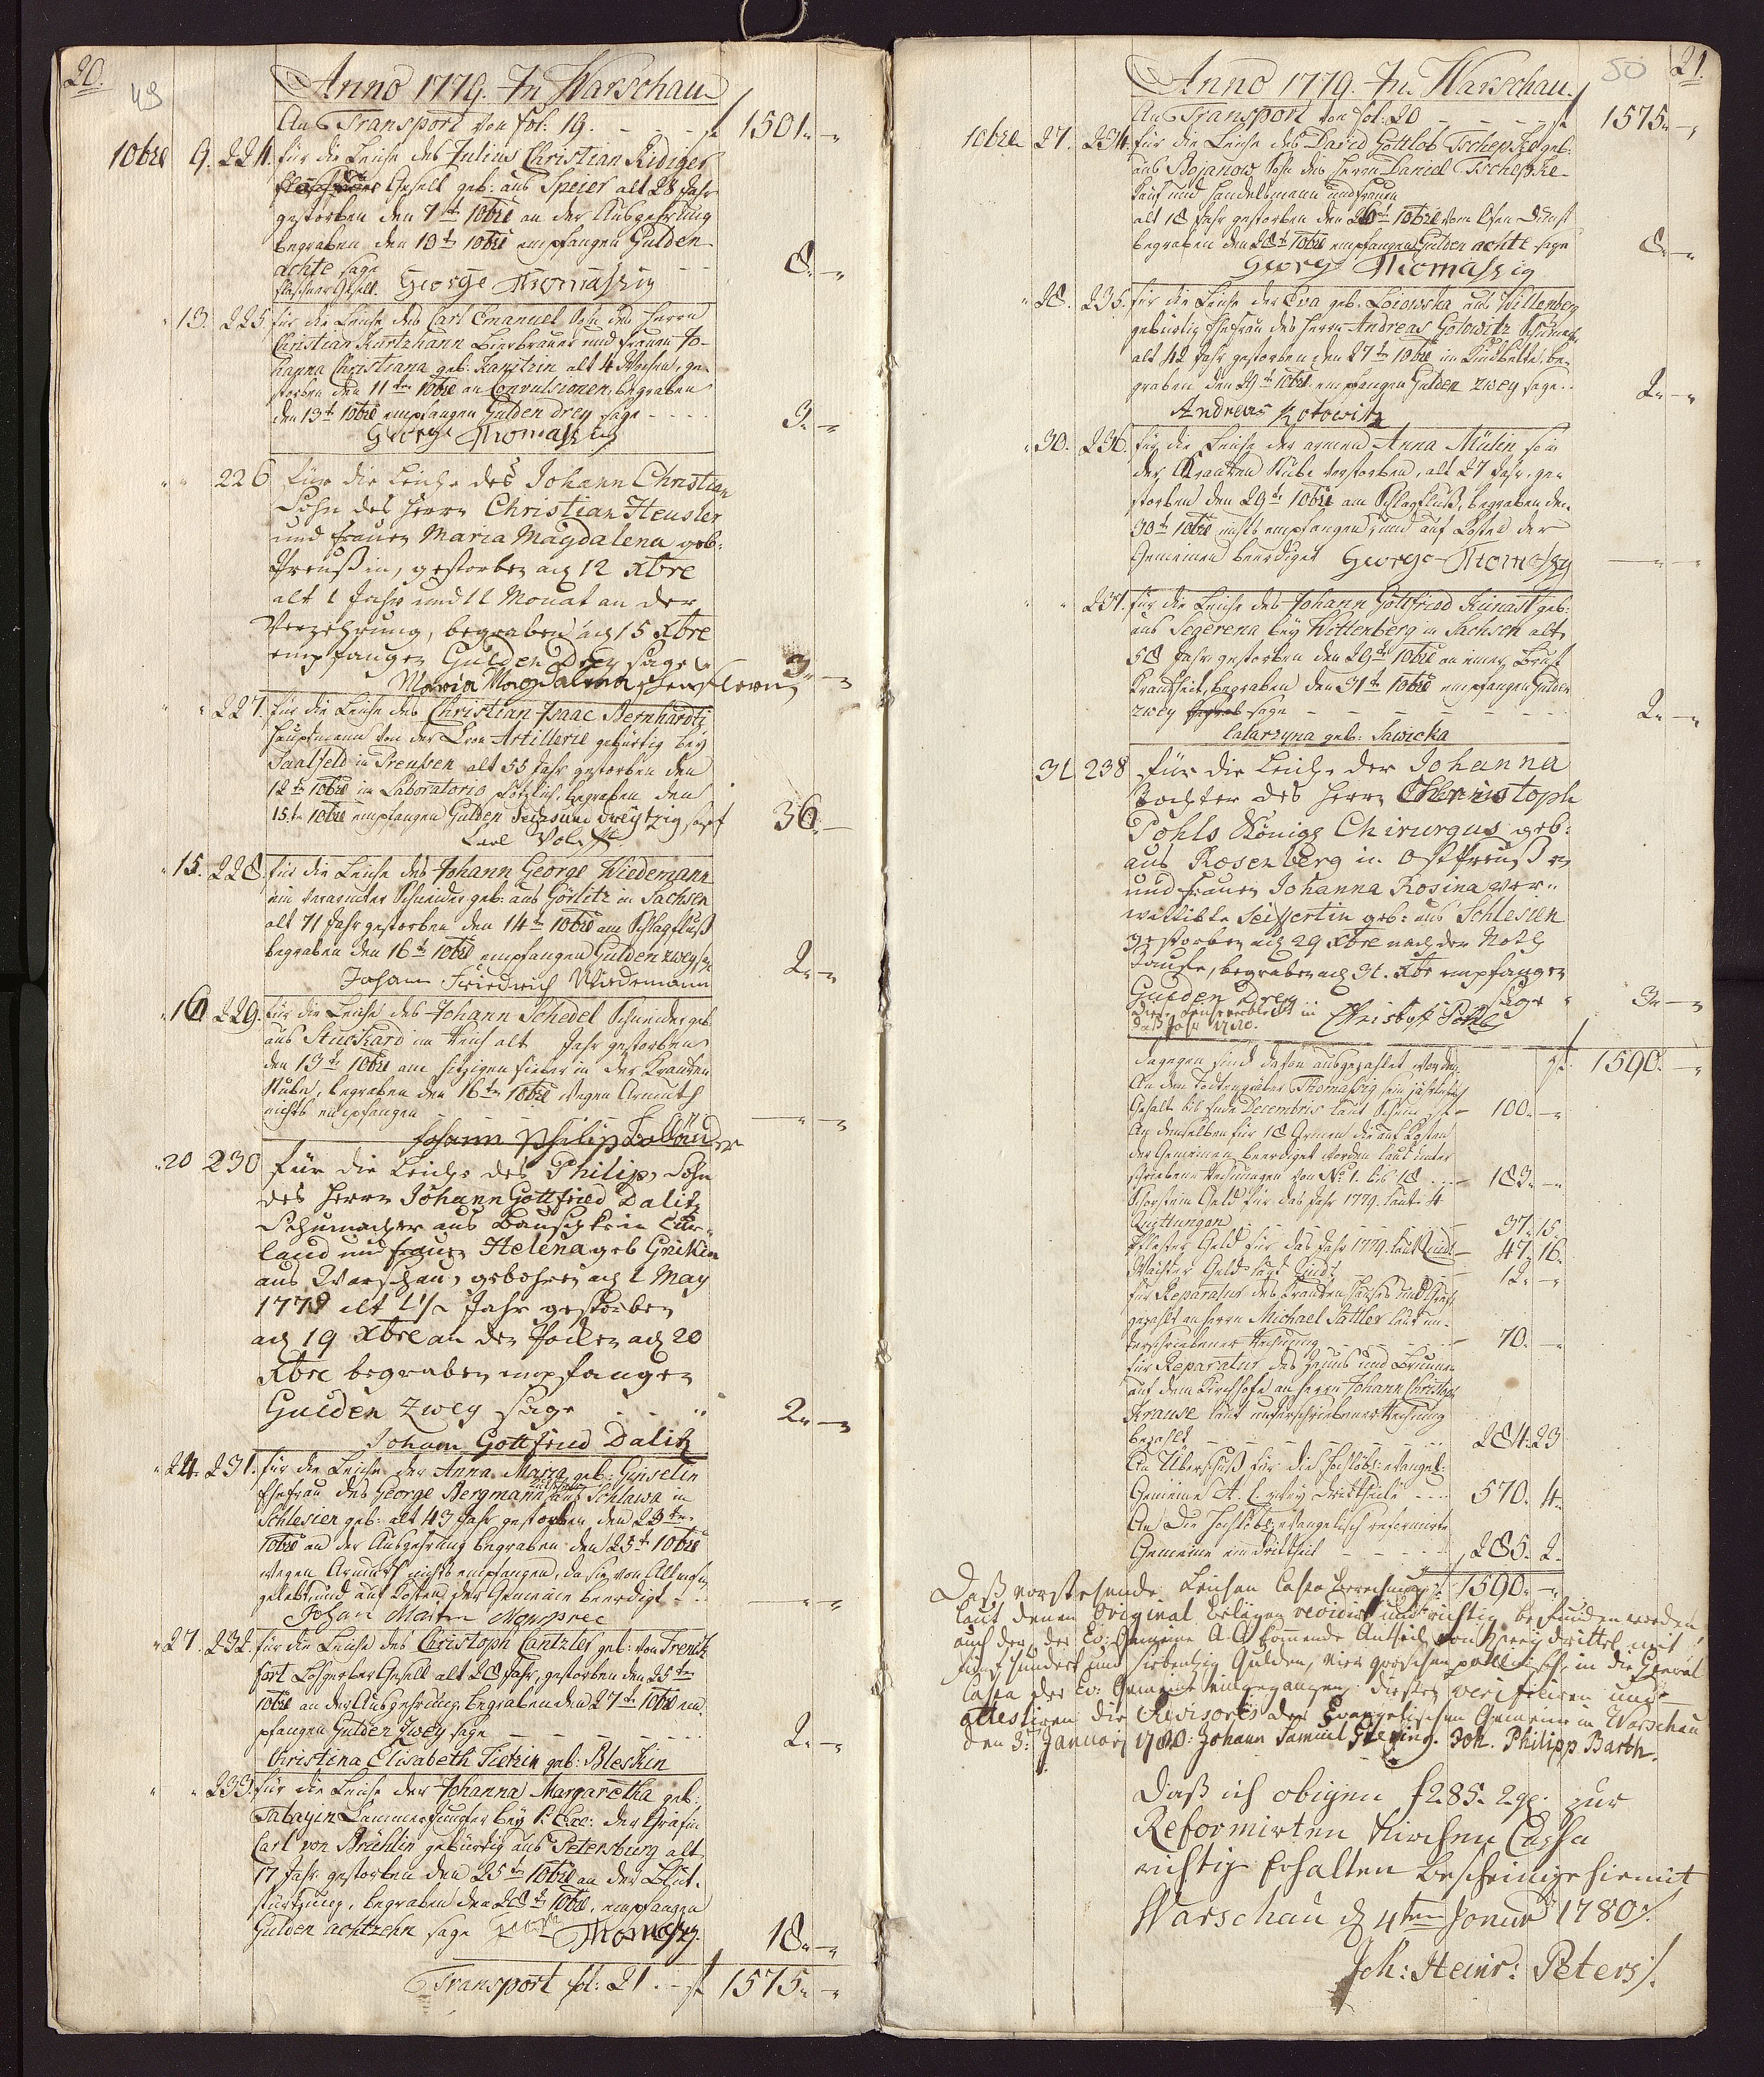 20.
49
Anno 1779. In Warschau
An Transport von fol: 19. - - - f 1501. -
10bre 9. 224. für die Leiche des Julius Christian Rüdiger
Gesell geb: aus Speier alt 28 Jahr
gestorben den 7t 10bre an der Auszehrung
begraben den 10t 10bre empfangen Gulden
achte sage - - 8. -
flaschner Gesell. George Thomaszig
" 13. 225. für die Leiche des Carl Emanuel Sohn des Herrn
Christian Kurtzhann Bierbrauer und Frauen Jo-
hanna Christiana geb: alt 4 Wochen, ge-
storben den 11ten 10bre an Convulsionen, begraben
den 13t 10bre empfangen Gulden drey sage - - - - 3. -
George Thomaszig
" " 226 für die Leiche des Johann Christian
Sohn des Herrn Christian Heusler
und Frauen Maria Magdalena geb:
Preußin, gestorben auf 12 Xbre
alt 1 Jahr und 11 Monat an der
Verzehrung, begraben auf 15 Xbre
empfangen Gulden Drey sage 3. -
Maria Magdalena
" " 227. für die Leiche des Christian Isaac Bernhardti
Hauptmann von der Cron Artillerie gebürtig bey
Saalfeld in Preußen alt 55 Jahr gestorben den
12t 10bre im Laboratorio plötzlich, begraben den
15t 10bre empfangen Gulden sechsund dreyßig sage 36. -
Carl
" 15. 228. für die Leiche des Johann George Wiedemann
ein verarmter Schneider geb: aus Görlitz in Sachsen
alt 71 Jahr gestorben den 14t 10bre am Schlagfluß
begraben den 16t 10bre empfangen Gulden zwey 2. -
Johann Friedrich Wiedemann
" 16 229. für die Leiche des Johann Schedel Schneider geb
aus Stuckard im Reich alt Jahr gestorben
den 13t 10bre am hitzigen Fieber in der Krancken
Stube, begraben den 16t 10bre wegen Armuth
nichts empfangen - - -
Johann Philip Holländer
" 20 230 für die Leiche des Philip, Sohn
des Herrn Johann Gottfried Dalitz
Schumacher aus Bauschke in Cur-
land und Frauen Helena geb Grikin
aus Warschau, gebohren auf 1 May
1778 alt 1 1/2 Jahr gestorben
auf 19 Xbre an den Pocken auf 20
Xbre begraben empfangen
Gulden Zwey sage - - 2. -
Johann Gottfried Dalitz
" 24. 231. für die Leiche der Anna Maria geb: Geiselin
Ehefrau des George Bergmann aus Schlawa in
Schlesien geb: alt 43 Jahr gestorben den 23t
10bre an der Auszehrung begraben den 25t 10bre
wegen Armuth nichts empfangen, da sie von Allmosen
gelebt, und auf Kosten der Gemeine beerdigt - -
Johan Martin
" 27. 232. für die Leiche des Christoph Cantzler geb: von Frenck
fort Lohgerber Gesell alt 28 Jahr, gestorben den 25ten
10bre an der Auszehrung, begraben den 27t 10bre em-
pfangen Gulden Zwey sage - - - 2. -
Christina Elisabeth Fickin geb: Bleskin
" " 233. für die Leiche der Johanna Margaretha geb:
Tabayin Cammerjungfer bey S: Exc: der Gräfin
Carl von Brühlin gebürtig aus Petersburg alt
17 Jahr gestorben den 25t 10bre an der Blut-
stürtzung, begraben den 28t 10bre, empfangen
Gulden achtzehn sage George Thomaszig 18. -
Transport fol: 21. - f 1575. -
50 21.
Anno 1779. In Warschau.
An Transport von fol: 20 - - - - f 1575. -
10bre 27. 234. für die Leiche des David Gottlob Tschepke geb:
aus Bojanow Sohn des Herrn Daniel Tschepke
Kauf und Handelsmann und Frauen
alt 18 Jahr gestorben den 26t 10bre vom Ofen Dunst
begraben den 28t 10bre empfangen Gulden achte sage 8. -
George Thomaszig
" 28. 235. für die Leiche der Eva geb. Loiowska aus Willenberg
gebürtig Ehefrau des Herrn Andreas Gotowitz
alt 42 Jahr gestorben den 27t 10bre im Kindbette, be-
graben den 29t 10bre empfangen Gulden zwey sage - - 2. -
Andreas Kotowitz
" 30. 236. für die Leiche der armen Anna Mülin so in
der Krancken Stube verstorben, alt 27 Jahr, ge-
storben den 29t 10bre am Schlagfluß, begraben den
30t 10bre nichts empfangen, und auf Kosten der
Gemeinen beerdiget George Thomaszig - -
" " 237. für die Leiche des Johann Gottfried Kunast geb:
aus Segerena bey Wittenberg in Sachsen alt
58 Jahr gestorben den 29t 10bre an einer Brust
Kranckheit, begraben den 31t 10bre empfangen Gulden
zwey sage - - - - - 2. -
Catarzyna geb: Sawicka
31 238 für die Leiche der Johanna
Tochter des Herrn Christoph
Pohls Königs Chirurgus geb:
aus Rosenberg in Ostpreußen
und Frauen Johanna Rosina ver-
wittibte Seiffertin geb: aus Schlesien
gestorben auf 29 Xbre nach der Noth
Taufe, begraben auf 31. Xbr empfangen
Gulden Drey sage " 3. -
in Christoff Pohl
f 1590. -
dagegen sind davon ausgezahlet worden
An den Todtengräber Thomaßig sein jährlich
Gehalt bis Ende Decembris laut Schein f - 100. -
An denselben für 18 Armen die auf Kosten
der Gemeinen beerdiget worden laut unter
schriebene Rechnungen von No: 1. bis 18 - - 183. -
Schorstein Geld für das Jahr 1779. laut 4
Quittungen - - - - 37. 15.
Pflaster Geld für das Jahr 1779. laut Quit - 47. 16.
Wächter Geld laut Quit - - 12. -
für Reparatur des Krancken Hauses
gezahlt an Herrn Michael Sattler laut un-
terschriebener Rechnung - - - - 70. -
für Reparatur des Zauns und Brunnen
auf dem Kirchhofe an Herrn Johann Christoph
Krause laut unterschriebener Rechnung
bezahlt - - - - - - 284. 23
An Überschuß für die Hochlöbl: evangel:
Gemeine A. C. zwey Dritttheile - - - 570. 4.
An Die Hochlöbl: evangelisch reformirte
Gemeine ein Dritttheil - - - - 285. 2.
Daß vorstehende Leichen Cassa Berechnung f 1590. -
laut denen Original Belägen revidirt und richtig befunden worden
auch der, der Ev: Gemeine A. C. kommende Antheil von zwey drittel mit
fünf hundert und siebentzig Gulden, vier groschen pollnisch, in die General
Cassa der Ev: Gemeine eingegangen: dieses verificiren und
attestiren die Revisores der Evangelischen Gemeine in Warschau
den 3: Januar 1780: Johann Samuel Giering. Joh. Philipp Barth.
Daß ich obigen f 285. 2 gr. zur
Reformirten Kirchen Cassa
richtig erhalten bescheinige hiermit
Warschau d 4ten Januar 1780.
Joh: Heinr: Peters